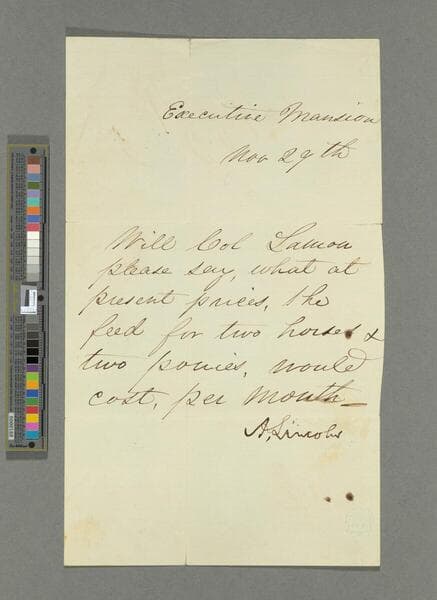 Executive Mansion
Nov 29th
Will Col Lamon
please say, what at
present prices, the
feed for two horses &
two ponies, would
cost, per month—
A. Lincoln